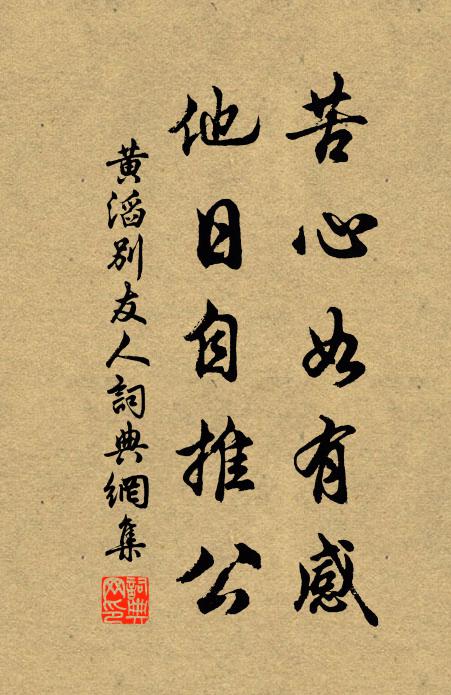 苦心如有感
他日自推公
黄滔別友人詞典網集
詞典網印